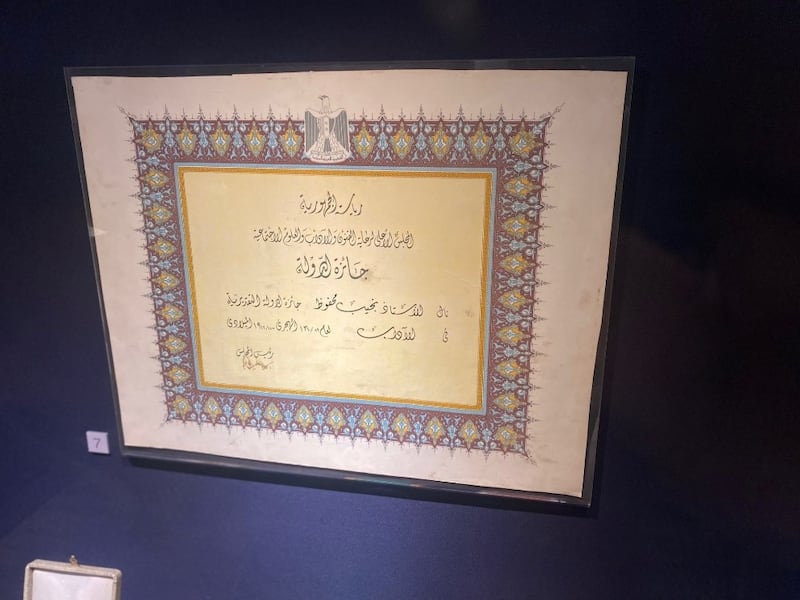 رياسة الجمهورية
المجلس الأعلى لرعاية الفنون والآداب والعلوم الاجتماعية
جائزة الدولة
نال الأستاذ نجيب محفوظ جائزة الدولة التقديرية
فى الآداب لعام الهجرى الميلادى
رئيس المجلس
7